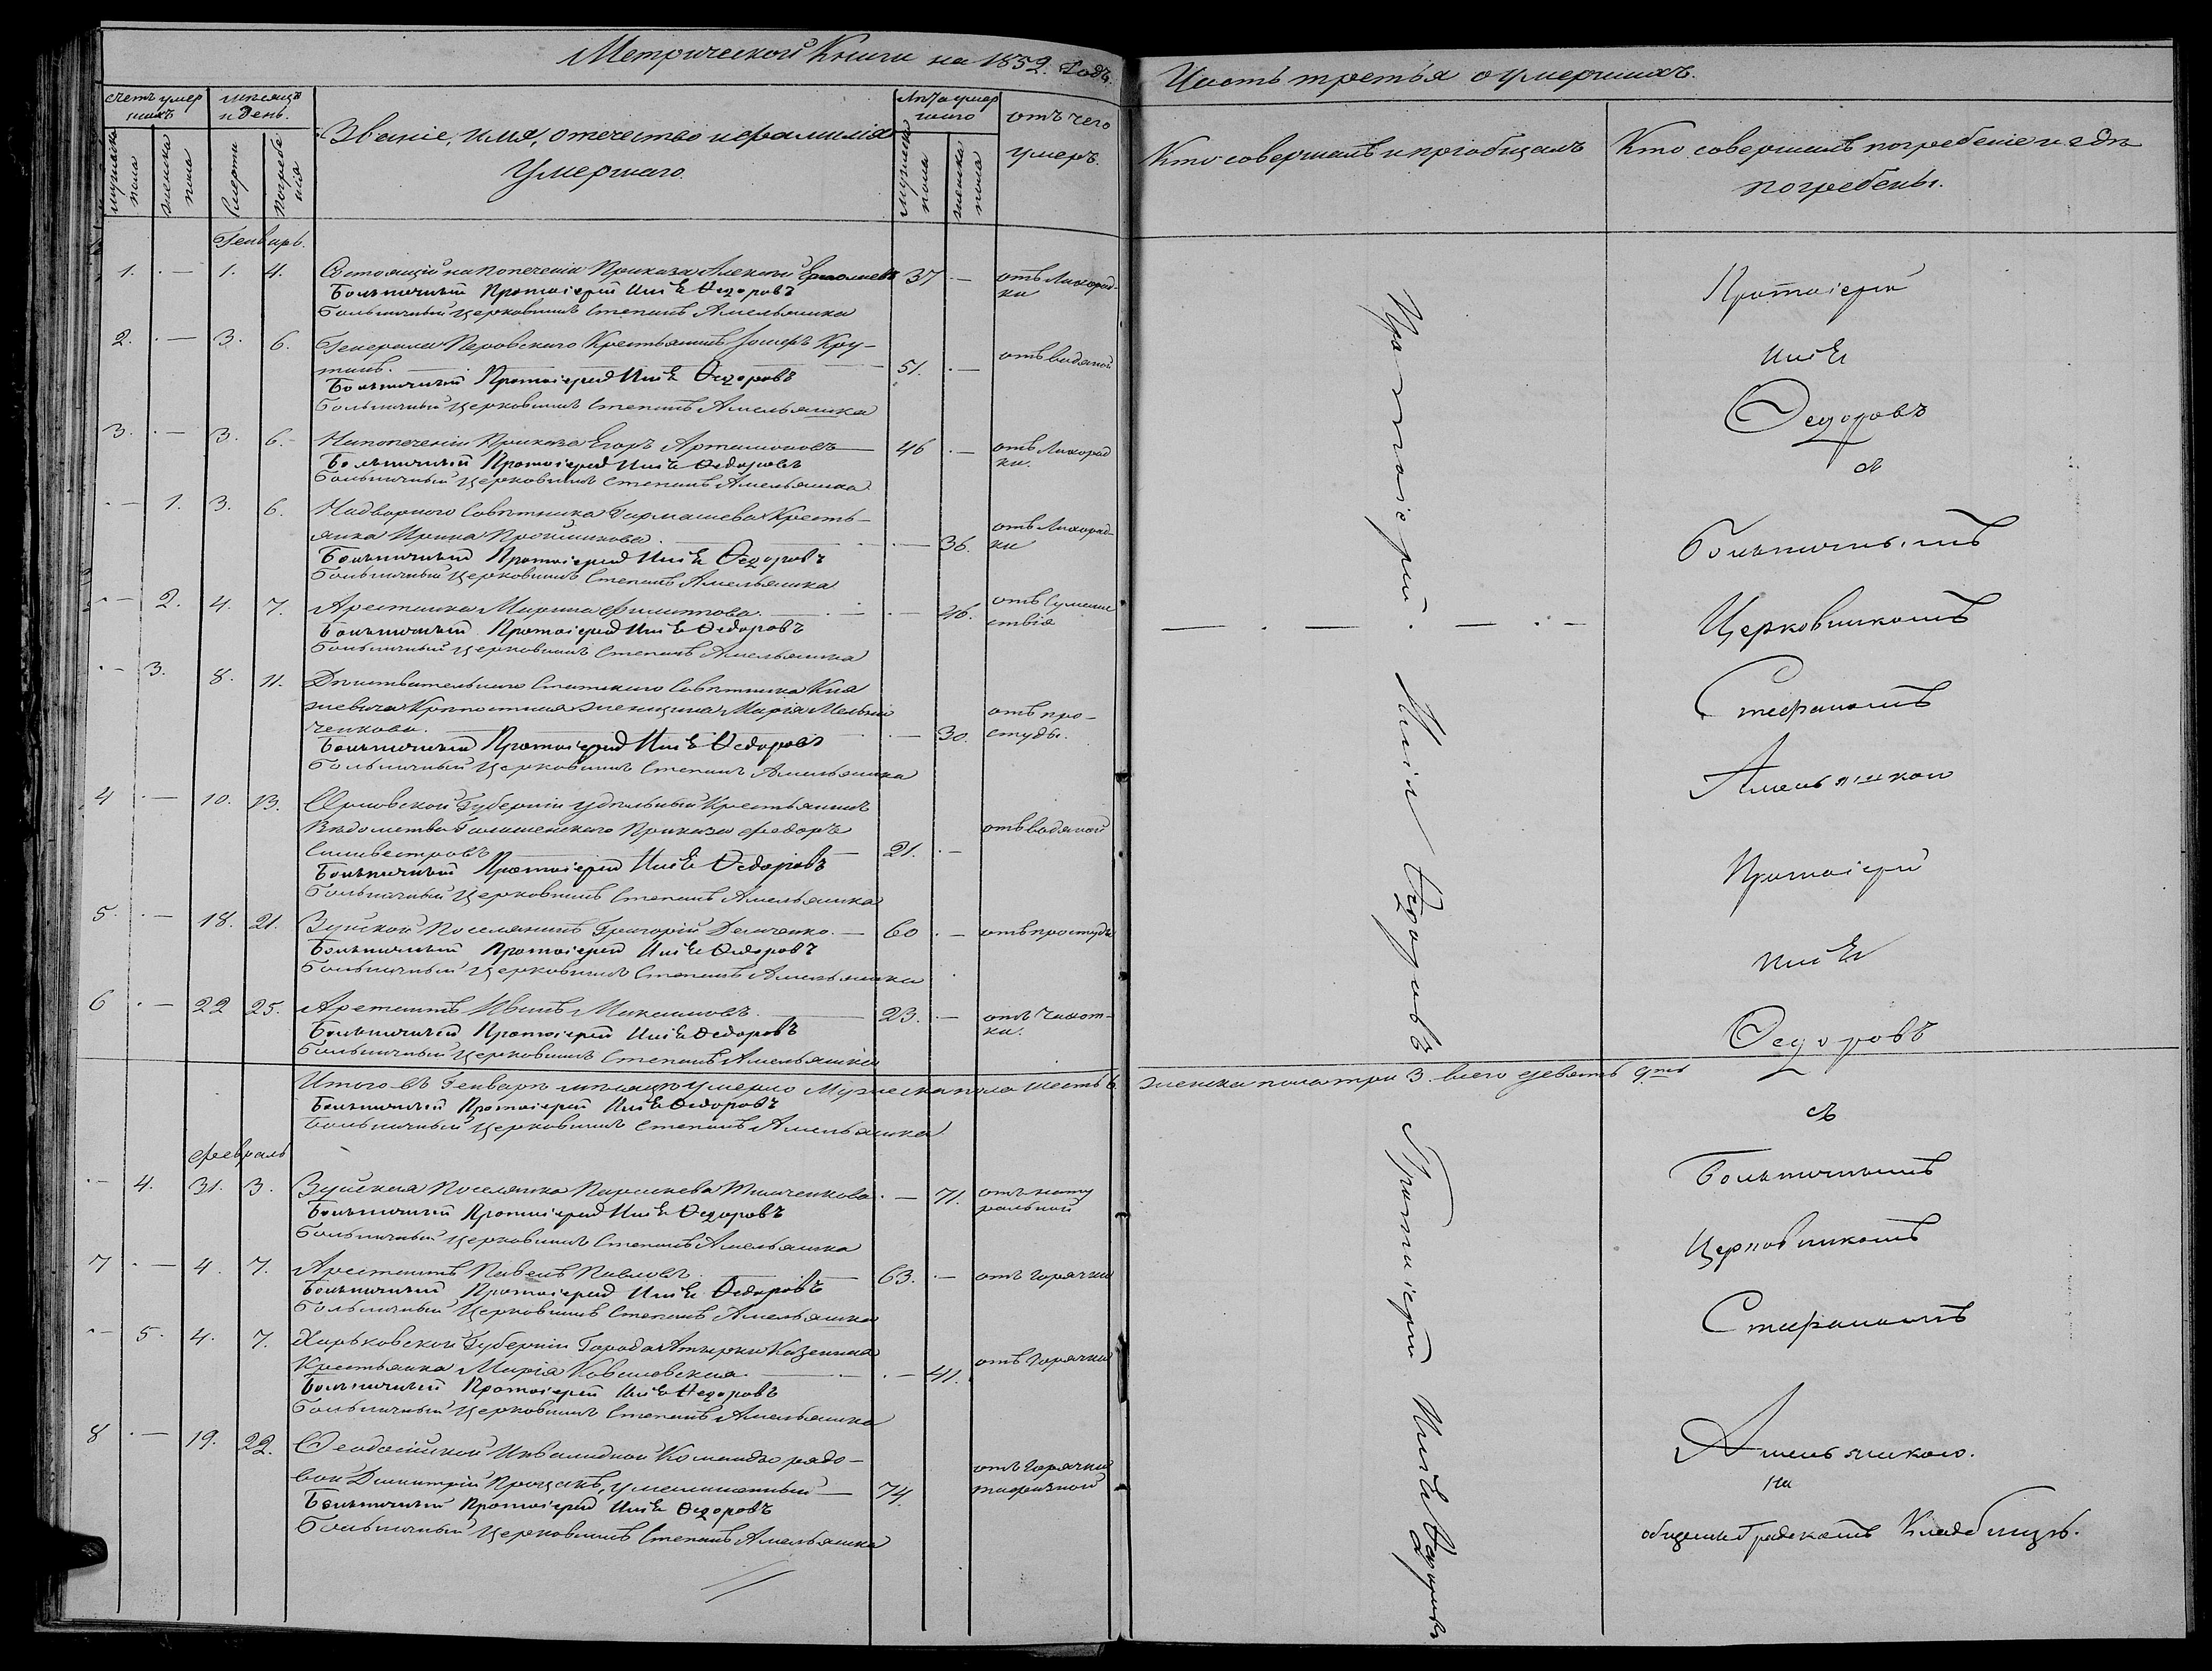 Метрической Книги на 1852. Годъ.
Часть третья о умершихъ.
счетъ умер
шихъ
мѣсяцъ
и день.
Званіе, имя, отечество и фамилія
умершаго.
лѣта умер
шаго
отъ чего
умеръ.
Кто совершалъ и пріобщалъ
Кто совершалъ погребеніе и гдѣ
погребены.
мужеска
пола
женска
пола
смерти
погребе
нія
мужеска
пола
женска
пола
Генварь.
1. — 1. 4. Состоящій на попеченіи Приказа Алексей 37 — отъ Лихорад-
ки
Больничный Протоіерей Илія Ѳедоровъ
Больничный церковникъ Степанъ Амельяшка
2. — 3. 6. Генерала Перовскаго Крестьянинъ Іосифъ Кру-
тинъ. — 51. — отъ водяной
Больничный Протоіерей Илія Ѳедоровъ
Больничный церковникъ Степанъ Амельяшка
3. — 3. 6. На попеченіи Приказа Егоръ Артамоновъ 46 — отъ Лихорад
ки.
Больничный Протоіерей Илія Ѳедоровъ
Больничный церковникъ Степанъ Амельяшка
— 1. 3. 6. Надворнаго Совѣтника Кресть-
янка Ирина — 36. отъ Лихорад-
ки
Больничный Протоіерей Илія Ѳедоровъ
Больничный церковникъ Степанъ Амельяшка
— 2. 4. 7. Арестанка Марина Филиппова. — 46. отъ Сумаше
ствія
Больничный Протоіерей Илія Ѳедоровъ
Больничный церковникъ Степанъ Амельяшка
— 3. 8. 11. Дѣйствительнаго Статскаго Совѣтника Кня
жевича Крѣпостная женщина Марія Мельни
ченкова. — 30. отъ про-
студы.
Больничный Протоіерей Илія Ѳедоровъ
Больничный церковникъ Степанъ Амельяшка
4 — 10. 13. Орловской Губерніи удѣльный Крестьянинъ
Вѣдомства Приказа Федоръ
Сильвестровъ — 21. — отъ водяной
Больничный Протоіерей Илія Ѳедоровъ
Больничный церковникъ Степанъ Амельяшка
5. — 18. 21. Зуйской Поселянинъ Григорій Демченко. — 60 — отъ простуды
Больничный Протоіерей Илія Ѳедоровъ
Больничный церковникъ Степанъ Амельяшка
6 — 22 25. Арестантъ Иванъ Максимовъ. 23. — отъ Чахот-
ки.
Больничный Протоіерей Илія Ѳедоровъ
Больничный церковникъ Степанъ Амельяшка
Итого въ Генварѣ мѣсяцѣ умерло Мужеска пола шесть 6. женска пола три 3 всего девять 9ть
Больничный Протоіерей Илія Ѳедоровъ
Больничный церковникъ Степанъ Амельяшка
Февраль
— 4. 31. 3. Зуйская Поселянка Параскева Тимченкова. — 71. отъ нату
ральной
Больничный Протоіерей Илія Ѳедоровъ
Больничный церковникъ Степанъ Амельяшка
7 — 4. 7. Арестантъ Павелъ Павловъ. 63. — отъ горячки
Больничный Протоіерей Илія Ѳедоровъ
Больничный церковникъ Степанъ Амельяшка
— 5. 4. 7. Харьковской Губерніи Города Ахтырки Казенная
Крестьянка Марія — 41. отъ горячки
Больничный Протоіерей Илія Ѳедоровъ
Больничный церковникъ Степанъ Амельяшка
8 — 19. 22. Ѳеодосійской Инвалидной Команды рядо-
вой Димитрій — 74. отъ горячки
тифозной
Больничный Протоіерей Илія Ѳедоровъ
Больничный церковникъ Степанъ Амельяшка
Протоіерей Илія Ѳедоровъ
Протоіерей Илія Ѳедоровъ
Протоіерей
Илія
Ѳедоровъ
съ
Больничнымъ
Церковникомъ
Стефаномъ
Амельяшкою
Протоіерей
Илія
Ѳедоровъ
съ
Больничнымъ
Церковникомъ
Стефаномъ
Амельяшкою.
на
общемъ Градскомъ Кладбищѣ.